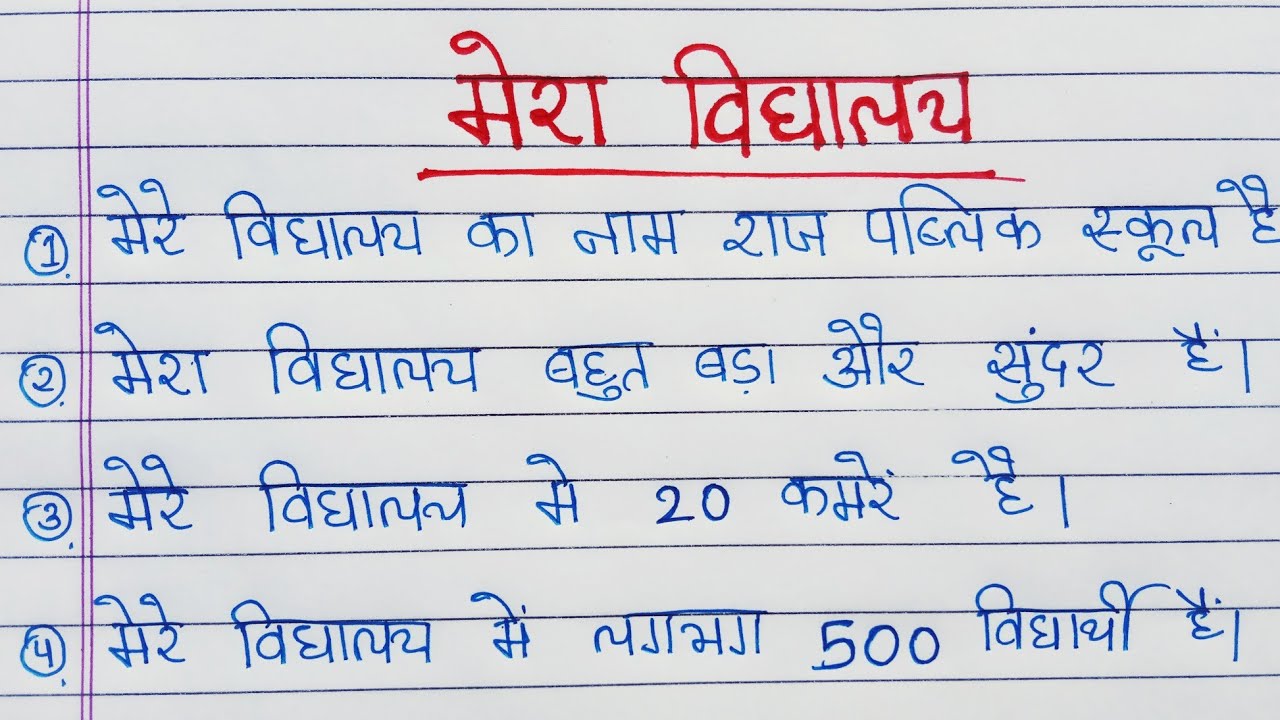 मेरा विद्यालय
1. मेरे विद्यालय का नाम राज पब्लिक स्कूल है
2. मेरा विद्यालय बहुत बड़ा और सुंदर हैं।
3. मेरे विद्यालय मे 20 कमरें है।
4. मेरे विद्यालय में लगभग 500 विद्यार्थी हैं।